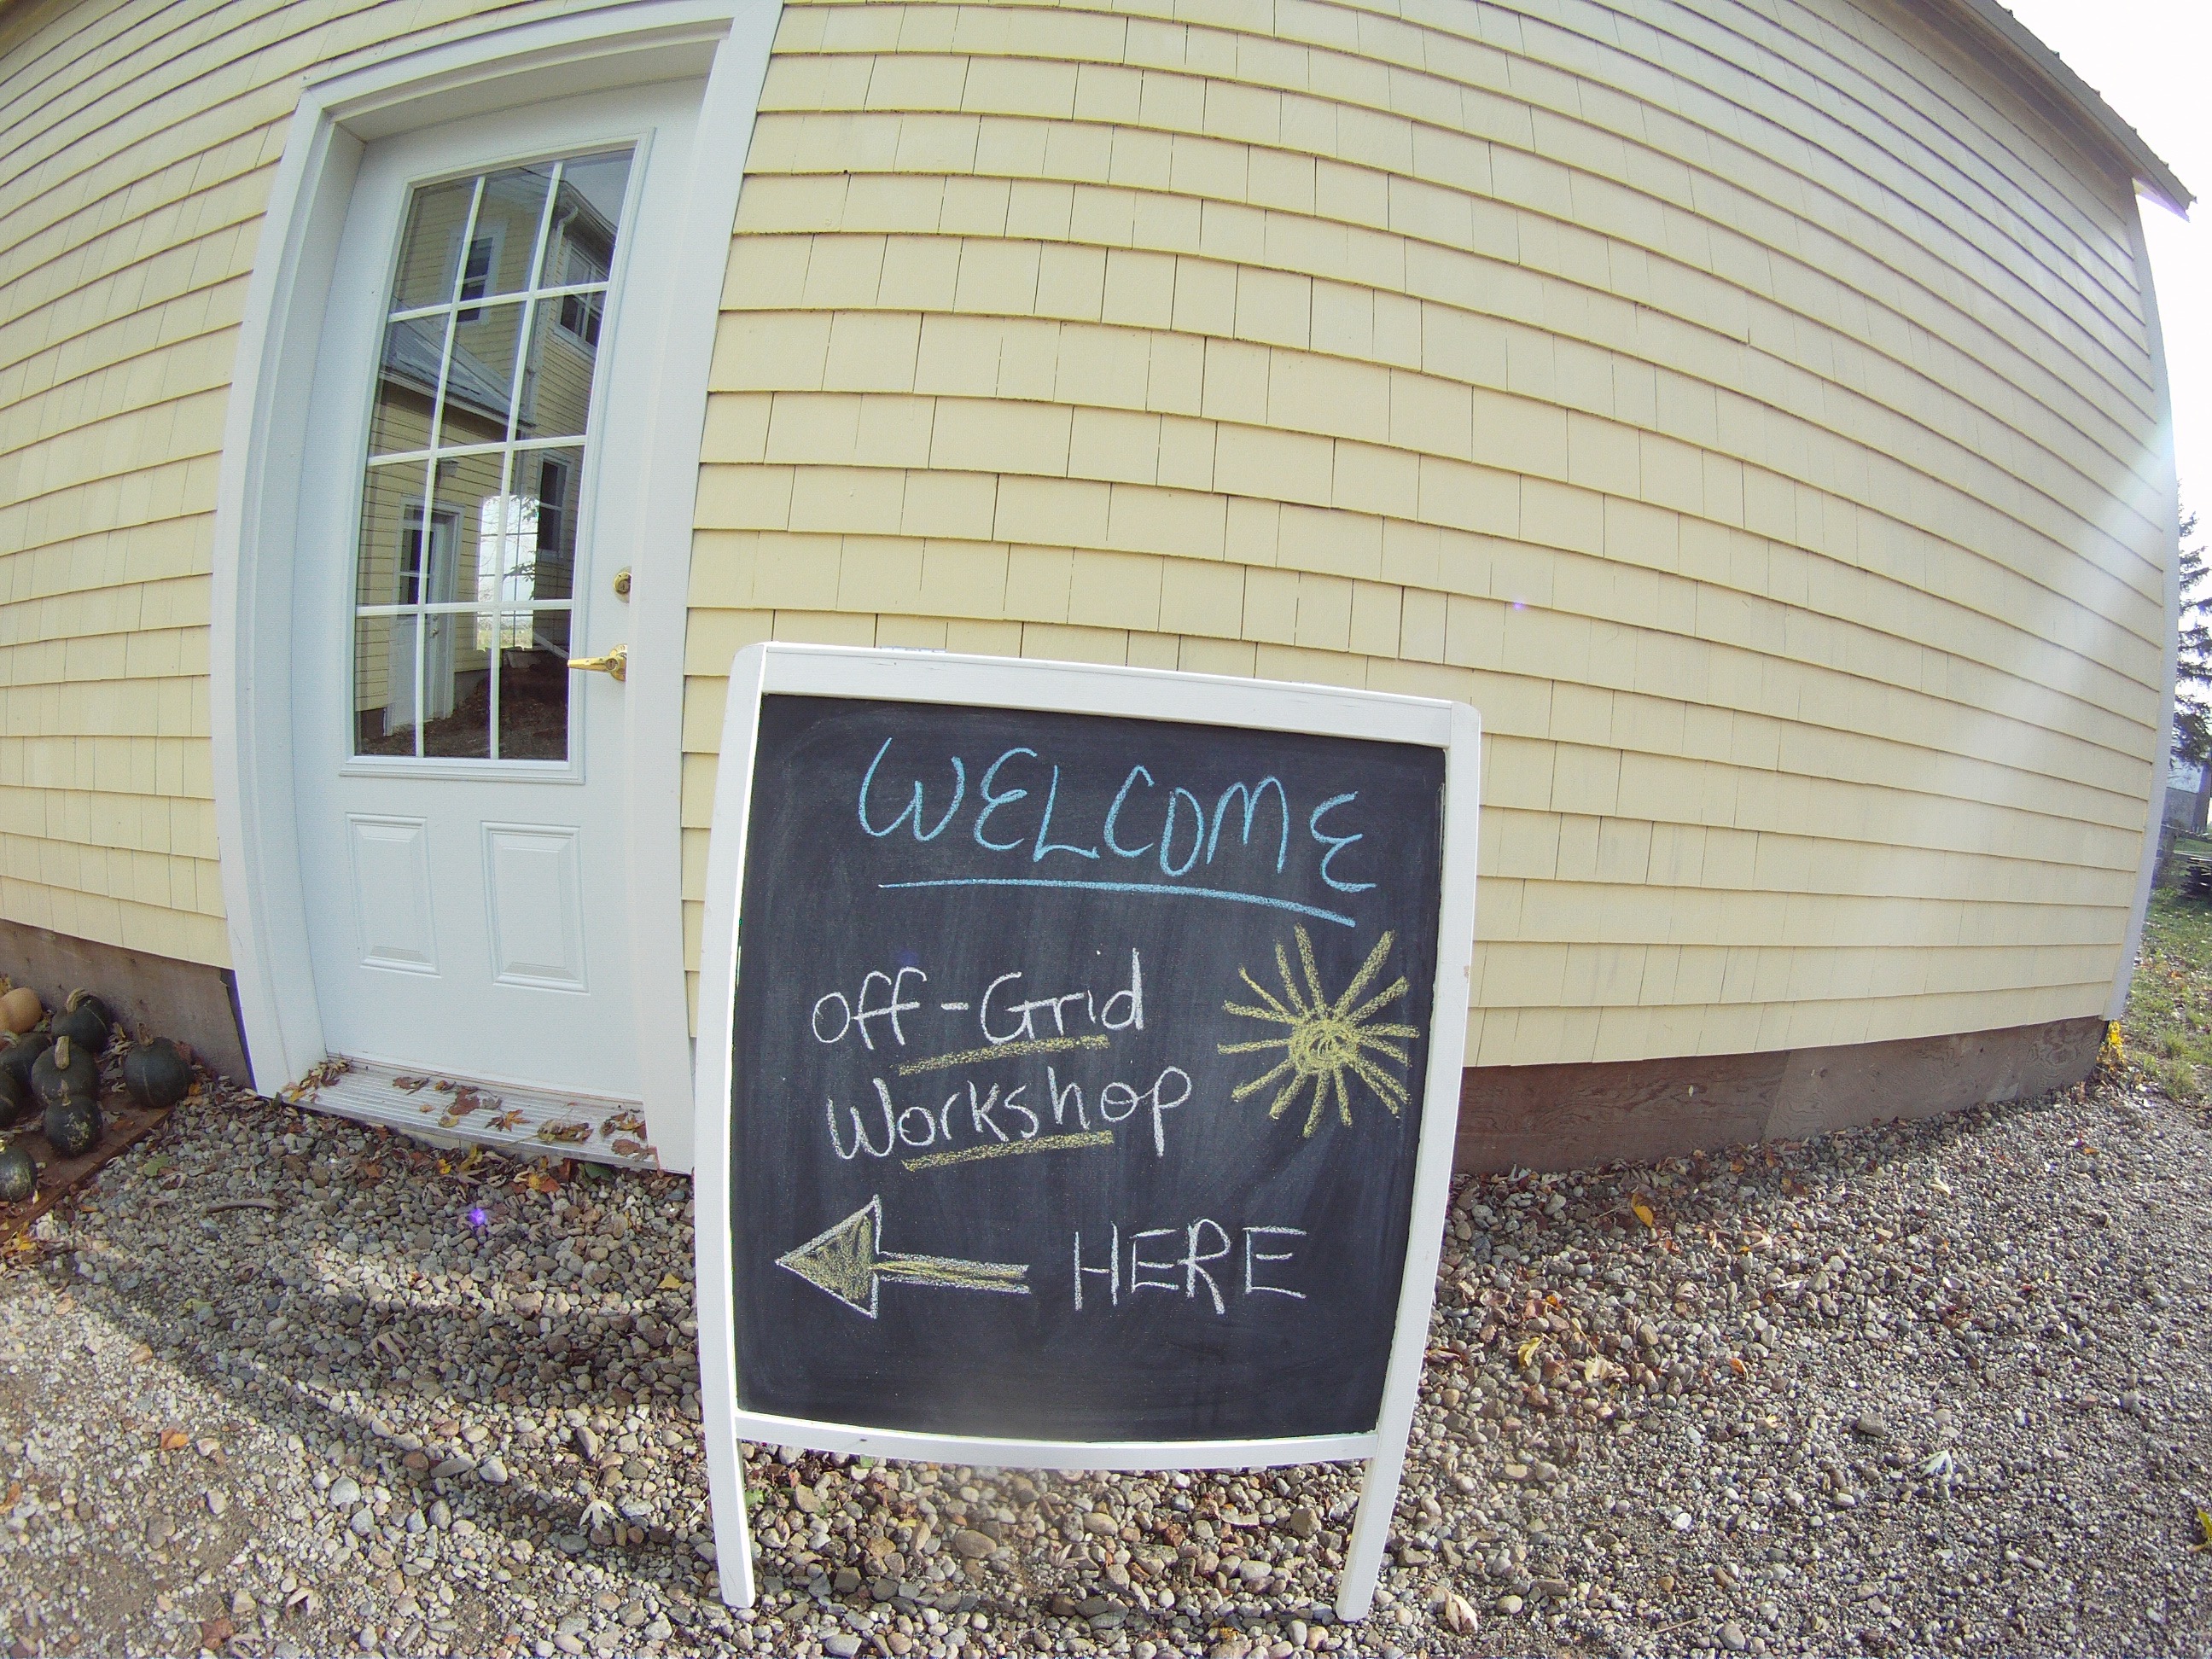 WELCOME
Off-Grid
Workshop
HERE